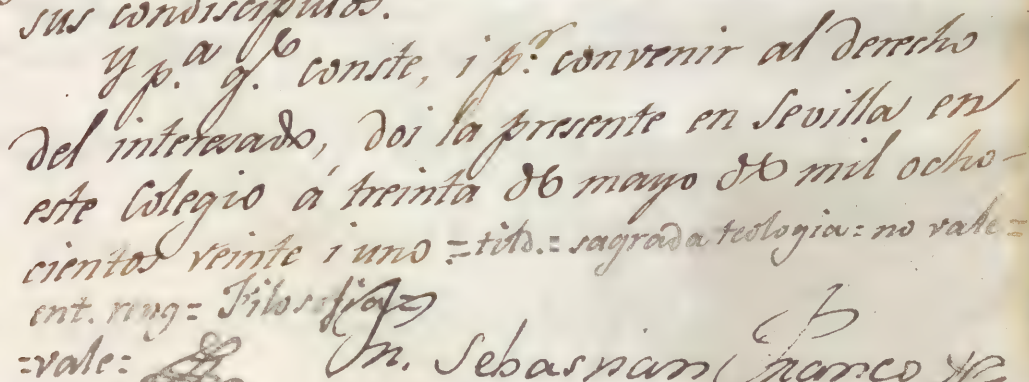 sus condiscipulos.
y p.a q.e conste, i p.r convenir al derecho
del interesado, doi la presente en Sevilla en
este Colegio á treinta de mayo de mil ocho-
cientos veinte i uno = tild.= sagrada teologia = no vale =
ent. reng = Filosofia
=vale= Sebastian Franco